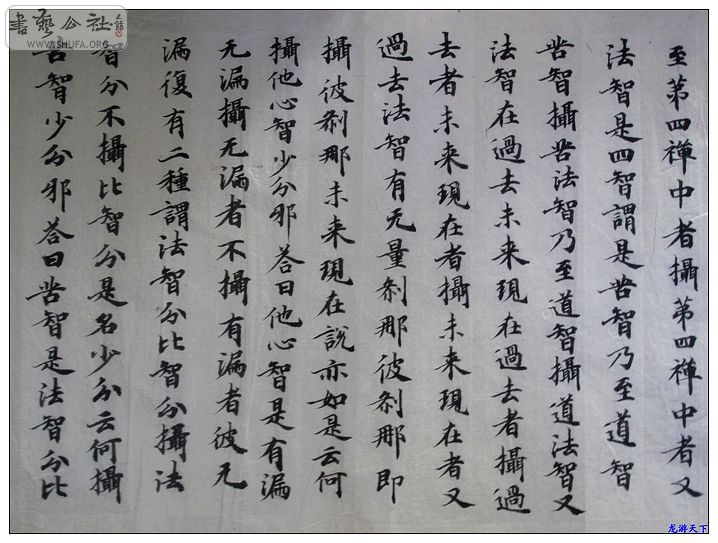 至第四禪中者攝第四禪中者又
法智是四智謂是苦智乃至道智
苦智攝苦法智乃至道智攝道法智又
法智在過去未来現在過去者攝過
去者未来現在者攝未来現在者又
過去法智有无量剎那彼剎那即
攝彼剎那未来現在說亦如是云何
攝他心智少分邪答曰他心智是有漏
无漏攝无漏者不攝有漏者彼无
漏復有二種謂法智分比智分攝法
智分不攝比智分是名少分云何攝
苦智少分邪答曰苦智是法智分比
書藝公社
WWW.SHUFA.ORG
龙游天下